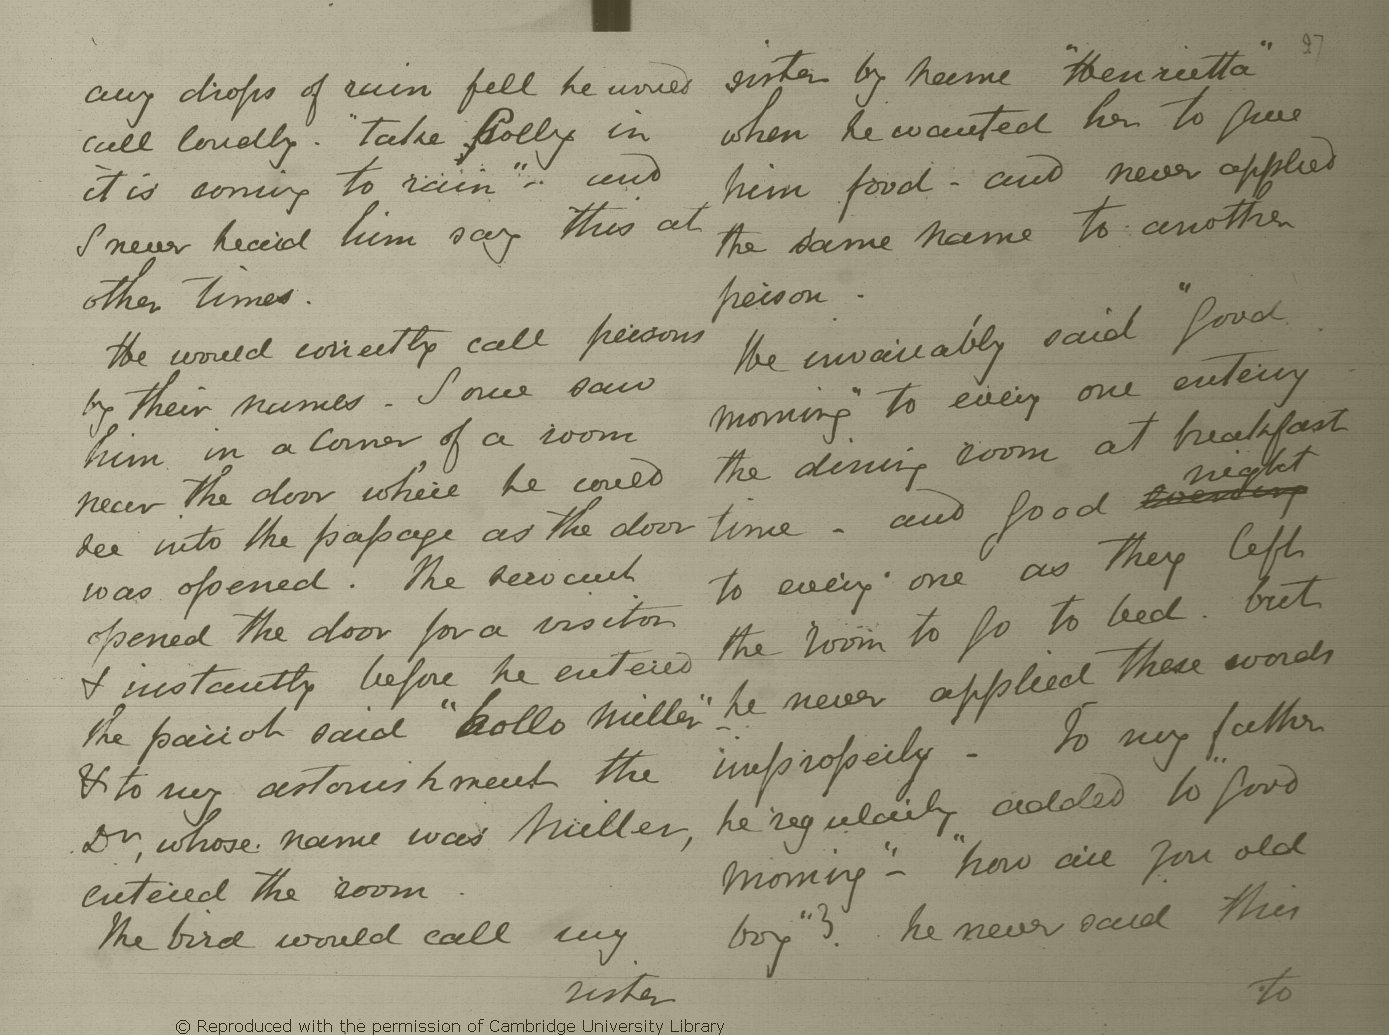 any drops of rain fell he would
call loudly. "take Polly in
it is coming to rain" - and
I never heard him say this at
other times.
He would correctly call persons
by their names - I once saw
him in a corner of a room
near the door where he could
see into the passage as the door
was opened. The servant
opened the door for a visitor
& instantly before he entered
the parrot said "hollo Miller"
& to my astonishment the
Dr, whose name was Miller,
entered the room.
The bird would call my
sister
27
sister by name "Henrietta"
when he wanted her to give
him food - and never applied
the same name to another
person.
He invariably said "good
morning" to every one entering
the dining room at breakfast
time - and good evening night
to every one as they left
the room to go to bed. but
he never applied these words
improperly - To my father
he regularly added to "good
morning" - "how are you old
boy"? he never said this
to
© Reproduced with the permission of Cambridge University Library